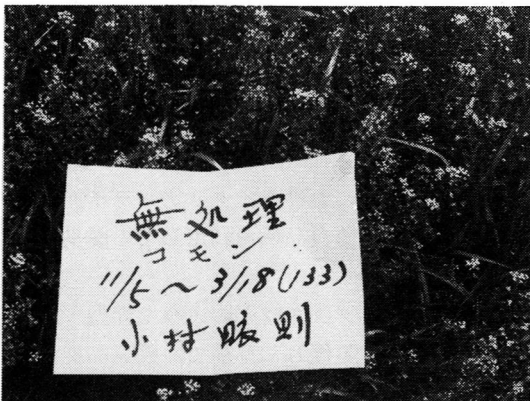 無処理
コモン
11/5〜3/18(133)
小村暖則